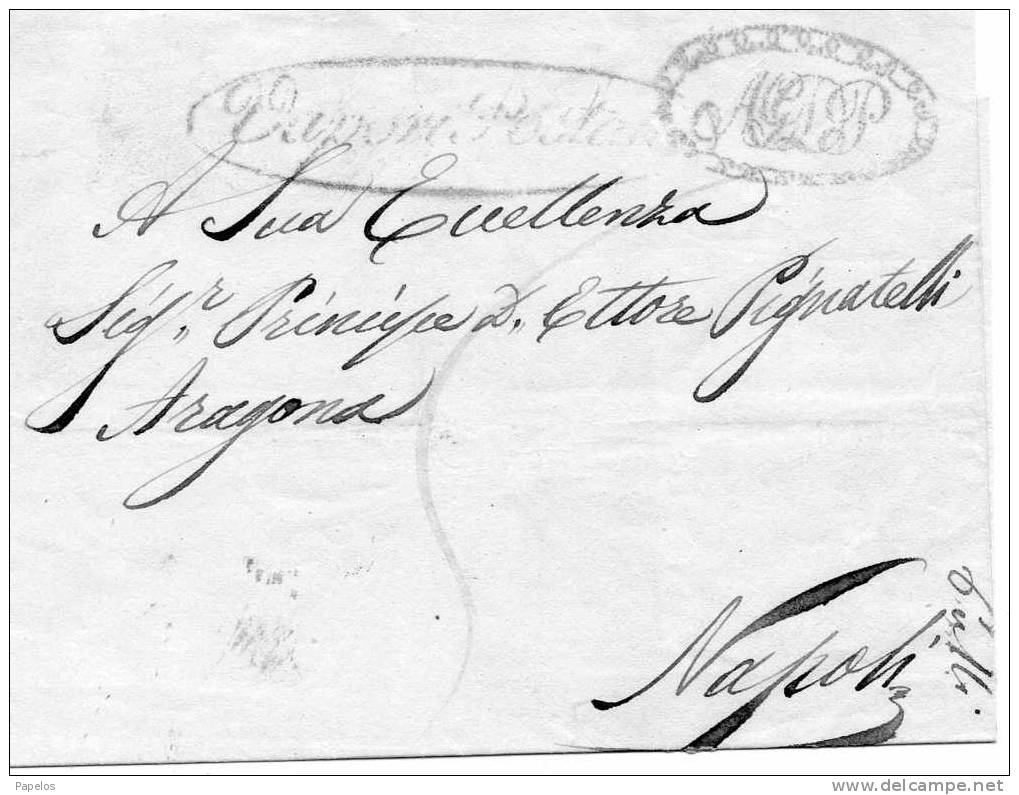 AGDP
A Sua Eccellenza
Sig.r Principe D. Ettore Pignatelli
Aragona
Napoli
Papelos
www.delcampe.net